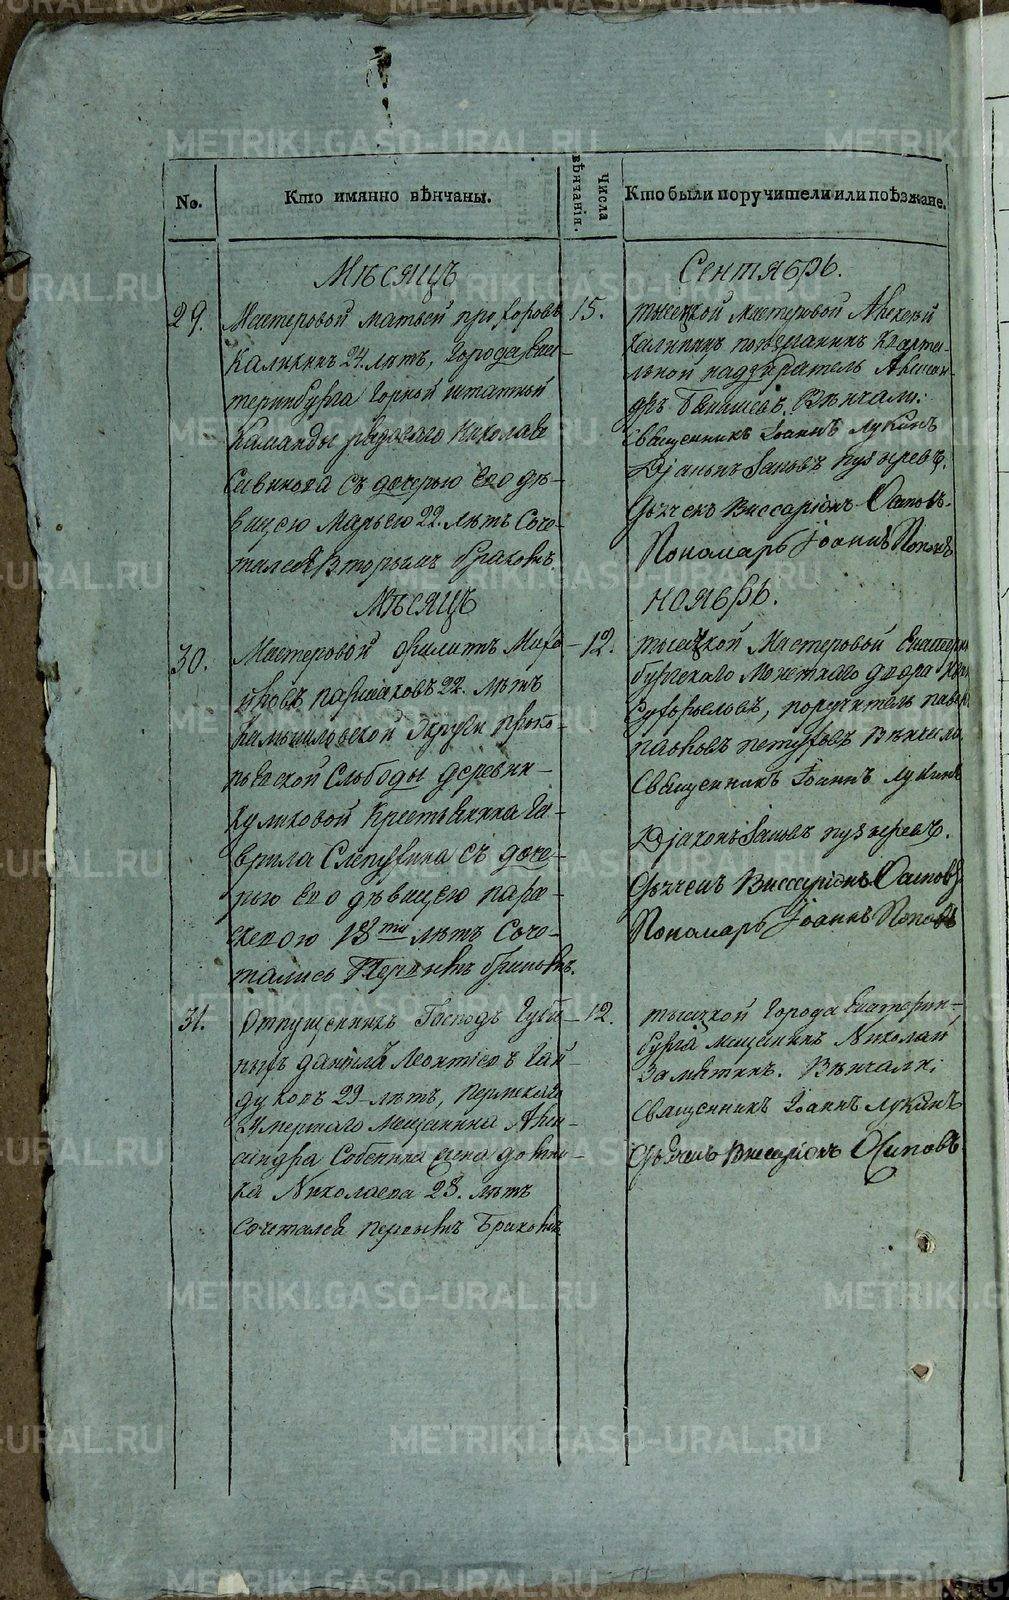 METRIKI.GASO-URAL.RU
No.
Кто имянно вѣнчаны.
Числа вѣнчанія.
Кто были поручители или поѣзжане.
Мѣсяцъ
Сентябрь.
29.
Мастеровой Матвей прохоровъ
Каликинъ 24. лѣтъ, города Екa-
теринбурга горной штатной
Каманды рядоваго Николая
Савинова съ дочерью его дѣ-
вицею Марьею 22. лѣтъ Соче-
тался Вторымъ бракомъ.
15.
тысяцкой Мастеровой Алексей
Каликинъ поезжанинъ Кварта-
льной надзиратель Алексан-
дръ Вѣнчали:
Священникъ Іоаннъ Лукинъ
Діаконъ Іаковъ пузыревъ.
Дьячекъ Виссаріонъ Осиповъ.
Пономарь Іоаннъ Поповъ
Мѣсяцъ
ноябрь.
30.
Мастеровой Филатъ
22. лѣтъ
Камышловской Округи
Слободы деревни
Куликовой Крестьянина Га-
врила съ доче-
рью его дѣвицею пара-
скевою 18ти лѣтъ Соче-
тались Первымъ бракомъ.
12.
тысяцкой Мастеровой Екатерин-
бургскаго Монетнаго двора
поручитель
петуховъ Вѣнчали
Священникъ Іоаннъ Лукинъ
Діаконъ Іаковъ пузыревъ.
Дьячекъ Виссаріонъ Осиповъ
Пономарь Іоаннъ Поповъ
31.
Отпущенникъ Господъ Губи-
ныхъ данила Леонтіевъ Гай-
дуковъ 29 лѣтъ, Пермскаго
Умершаго Мещанина Алек-
сандра Жена
Николаева 28. лѣтъ
сочетался первымъ Бракомъ
12.
тысяцкой Города Екатерин-
бурга мещанинъ Николай
Замяткинъ. Вѣнчали:
Священникъ Іоаннъ Лукинъ
Дьячекъ Виссаріонъ Осиповъ